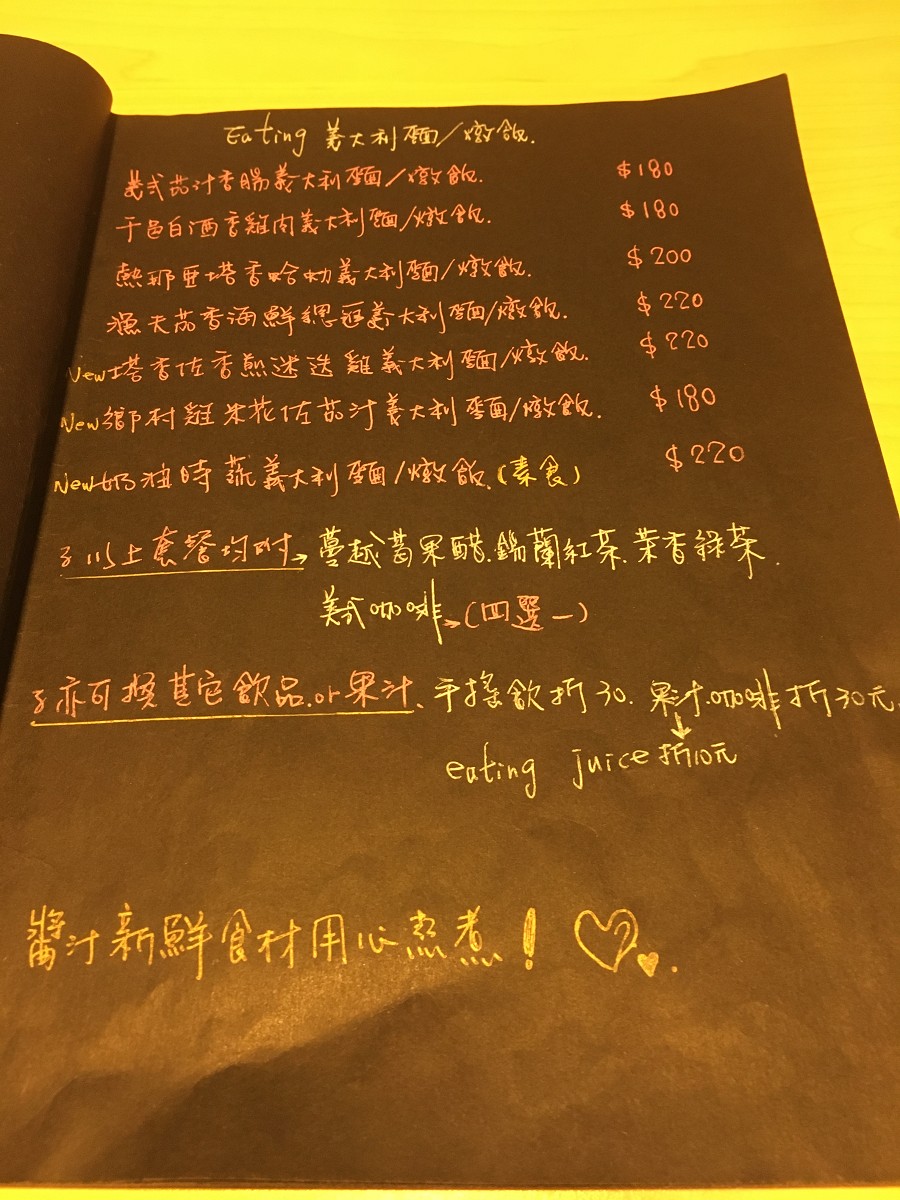 Eating 義大利麵/燉飯.
義式茄汁香腸義大利麵/燉飯. $180
干邑白酒香雞肉義大利麵/燉飯. $180
熱那亞塔香哈蛤義大利麵/燉飯. $200
漁夫茄香海鮮總匯義大利麵/燉飯. $220
New塔香佐香煎迷迭雞義大利麵/燉飯. $220
New鄉村雞米花佐茄汁義大利麵/燉飯. $180
New奶油時蔬義大利麵/燉飯.(素食) $220
以上套餐均附→蔓越莓果醋.錫蘭紅茶.茉香綠茶.
美式咖啡→(四選一)
亦可換其它飲品.or果汁、手搖飲折30.果汁.咖啡折30元.
eating juice折10元
醬汁新鮮食材用心熬煮!